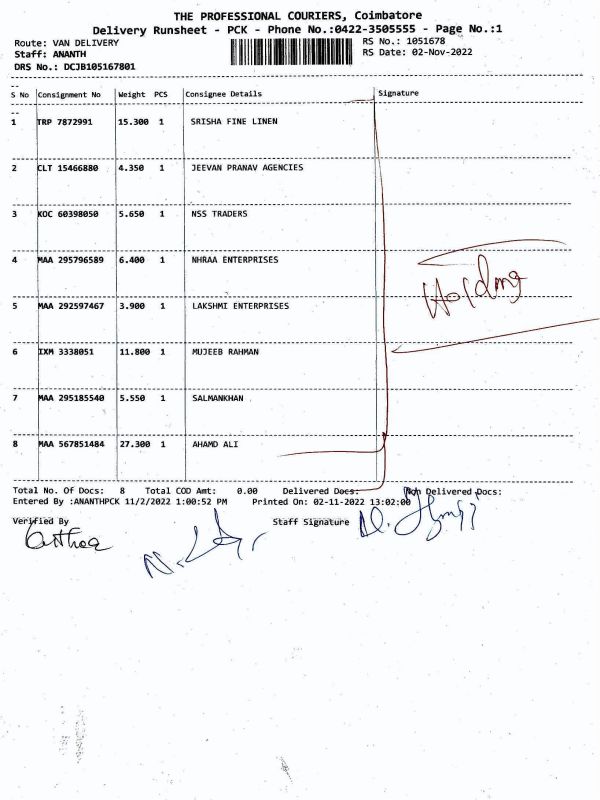 THE PROFESSIONAL COURIERS, Coimbatore
Delivery Runsheet - PCK - Phone No.:0422-3505555 - Page No.:1
Route: VAN DELIVERY RS No.: 1051678
Staff: ANANTH RS Date: 02-Nov-2022
DRS No.: DCJB105167801
S No Consignment No Weight PCS Consignee Details Signature
1 TRP 7872991 15.300 1 SRISHA FINE LINEN
2 CLT 15466880 4.350 1 JEEVAN PRANAV AGENCIES
3 KOC 60398050 5.650 1 NSS TRADERS
4 MAA 295796589 6.400 1 NHRAA ENTERPRISES
Holding
5 MAA 292597467 3.900 1 LAKSHMI ENTERPRISES
6 IXM 3338051 11.800 1 MUJEEB RAHMAN
7 MAA 295185540 5.550 1 SALMANKHAN
8 MAA 567851484 27.300 1 AHAMD ALI
Total No. Of Docs: 8 Total COD Amt: 0.00 Delivered Docs: Non Delivered Docs:
Entered By :ANANTHPCK 11/2/2022 1:00:52 PM Printed On: 02-11-2022 13:02:00
Verified By Staff Signature